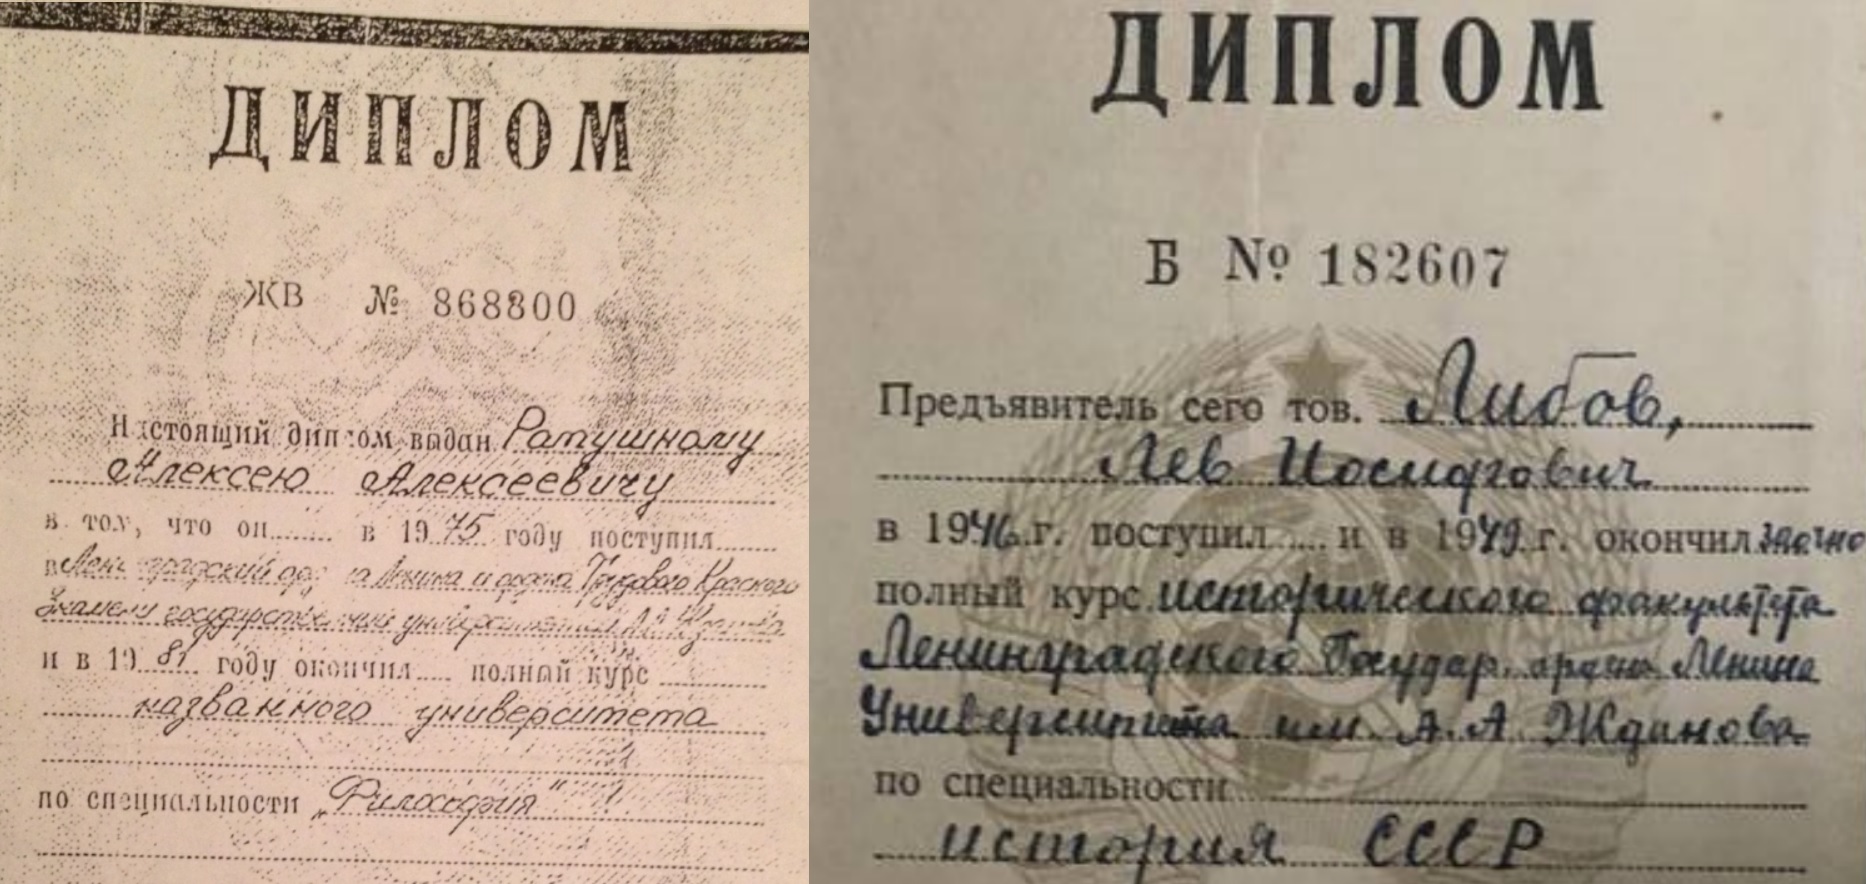 ДИПЛОМ
ЖВ № 868800
Настоящий диплом выдан Ратушному
Алексею Алексеевичу
в том, что он в 1975 году поступил
в Ленинградский ордена Ленина и ордена Трудового Красного
Знамени государственный университет им. А.А. Жданова
и в 1981 году окончил полный курс
названного университета
по специальности „Философия"
ДИПЛОМ
Б № 182607
Предъявитель сего тов. Либов,
Лев Иосифович
в 1946 г. поступил и в 1949 г. окончил заочно
полный курс исторического факультета
Ленинградского Государ. ордена Ленина
Университета им. А. А Жданова
по специальности
история СССР